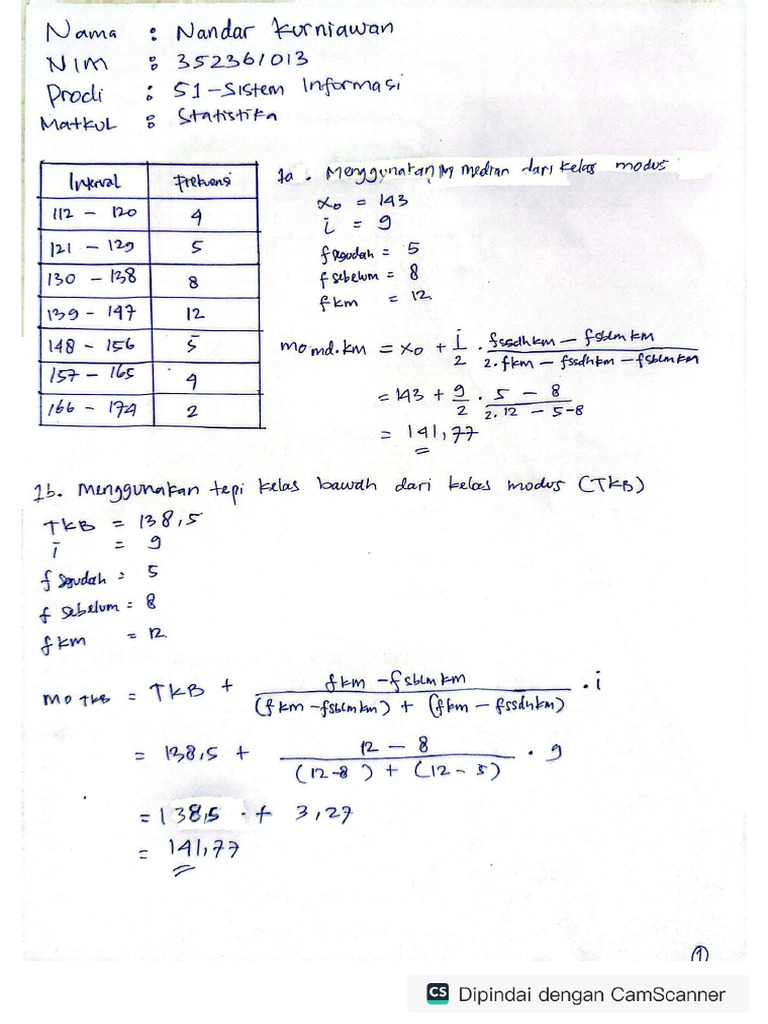 Nama : Nandar Kurniawan
NIM : 352361013
Prodi : S1-Sistem Informasi
Matkul : Statistika
Interval Frekuensi
112 - 120 4
121 - 129 5
130 - 138 8
139 - 147 12
148 - 156 5
157 - 165 4
166 - 174 2
1a. Menggunakan median dari kelas modus
x₀ = 143
i = 9
f sesudah = 5
f sebelum = 8
f km = 12
mo md.km = x₀ + i/2 . fssdhkm - fsblmkm / 2.fkm - fssdhkm - fsblmkm
= 143 + 9/2 . 5 - 8 / 2.12 - 5-8
= 141,77
1b. Menggunakan tepi kelas bawah dari kelas modus (TKB)
TKB = 138,5
i = 9
f sesudah = 5
f sebelum = 8
f km = 12
MO TKB = TKB + fkm - fsblmkm / (fkm - fsblmkm) + (fkm - fssdhkm) . i
= 138,5 + 12 - 8 / (12-8) + (12 - 5) . 9
= 138,5 + 3,27
= 141,77
1
CS Dipindai dengan CamScanner